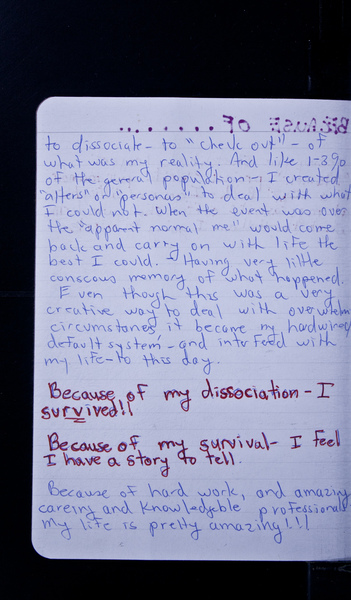 BECAUSE OF........
to dissociate- to "check out" - of
what was my reality. And like 1-3%
of the general population- I created
"alters" or "personas" to deal with what
I could not. When the event was over
the "apparent normal me" would come
back and carry on with life the
best I could. Having very little
conscous memory of what happened.
Even though this was a very
creative way to deal with overwhelm
circumstances it became my hardwired
default system - and interfeed with
my life- to this day.
Because of my dissociation - I
survived!!
Because of my survival- I feel
I have a story to tell.
Because of hard work, and amazing
careing and knowledgble professionals
my life is pretty amazing!!!